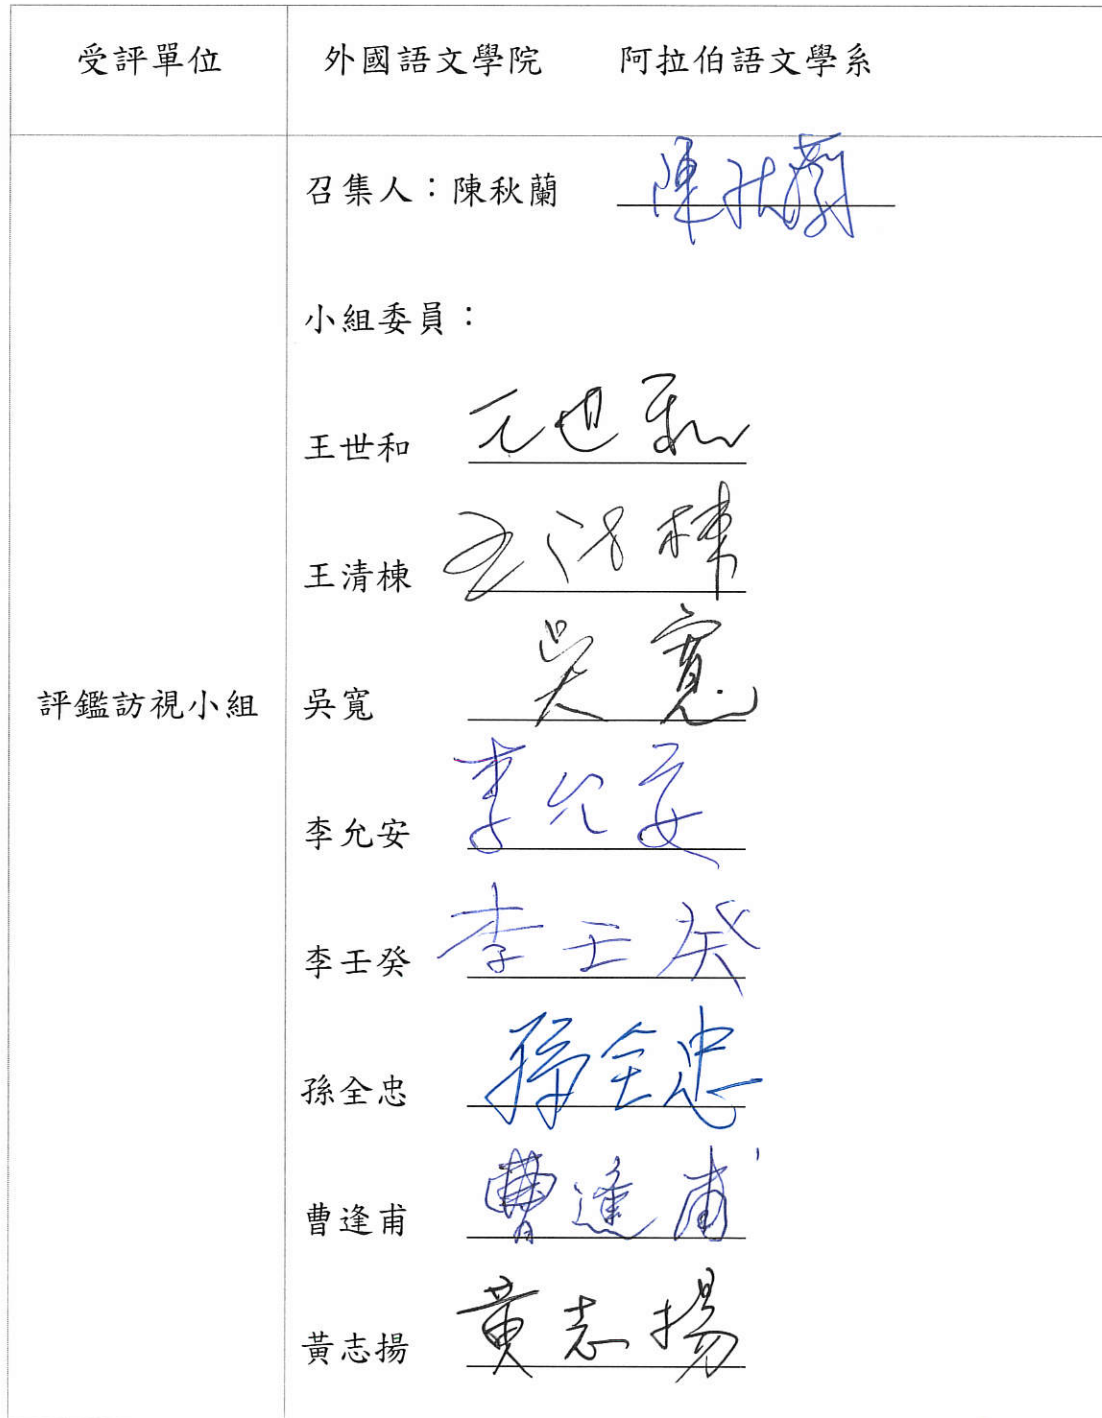 受評單位 外國語文學院 阿拉伯語文學系
召集人：陳秋蘭 陳秋蘭
小組委員：
王世和 王世和
王清棟 王清棟
評鑑訪視小組 吳寬 吳寬
李允安 李允安
李壬癸 李壬癸
孫全忠 孫全忠
曹逢甫 曹逢甫
黃志揚 黃志揚